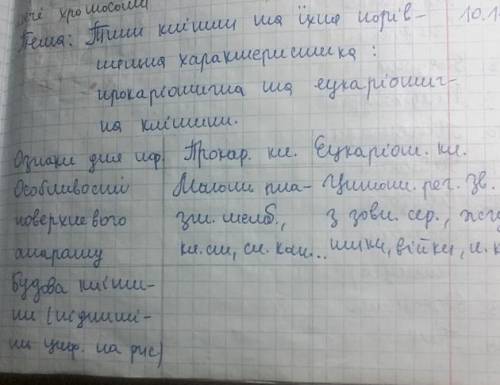 хромосоми
10.1
Тема: Типи клітин та їхня порів-
няльна характеристика:
прокаріотична та еукаріотич-
на клітини.
Ознаки для
Прокар. кл.
Еукаріот. кл.
Особливості
поверхневого
апарату
зм. мемб.,
кл. сті, сл. кап...
Цитопл.
з зовн. сер., джгу
тики, війки,
Будова кліти-
ни (підпиші-
ть циф. на рис)